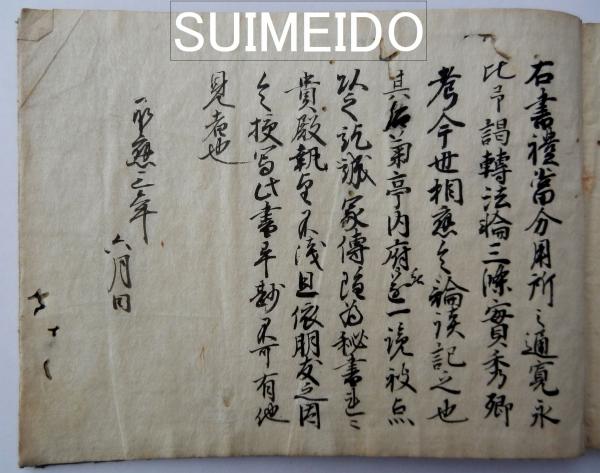 SUIMEIDO
右書禮當分用所之通寛永
比予謁轉法輪三條實秀卿
考今世相應之論談記之也
其后菊亭内府一読被点
以之訖誠家傳為秘書
貴殿執望不淺且依朋友之因
令授写此書畢不可有他
見者也
承應三年 六月日